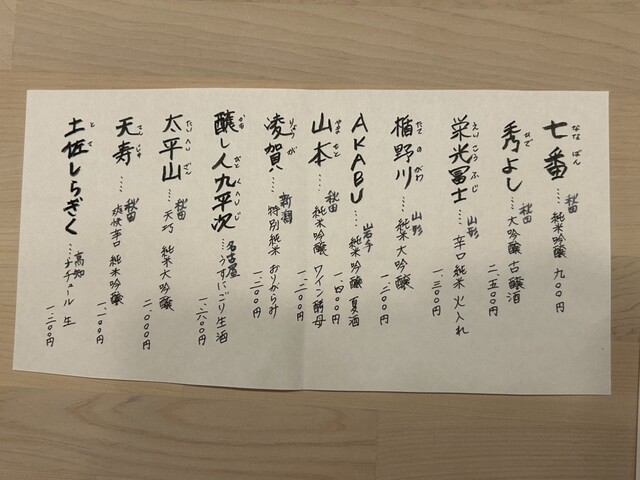 七番 なな ばん
…秋田 純米吟醸 九〇〇円
秀よし ひで
…秋田 大吟醸 古酒 二、五〇〇円
栄光冨士 えいこうふじ
…山形 辛口純米 火入れ 一、三〇〇円
楯野川 たて の がわ
…山形 純米大吟醸 一、二〇〇円
AKABU
…岩手 純米吟醸 夏酒 一、四〇〇円
山本 やま もと
…秋田 純米吟醸 ワイン酵母 一、二〇〇円
凌駕 りょう が
…新潟 特別純米 おりがらみ 一、二〇〇円
醸し人九平次 かも びと くへいじ
…名古屋 うすにごり生酒 一、六〇〇円
太平山 たいへいざん
…秋田 天巧 純米大吟醸 二、〇〇〇円
天寿 てん じゅ
…秋田 爽快辛口 純米吟醸 一、一〇〇円
土佐しらぎく と さ
…高知 ナチュール 生 一、二〇〇円